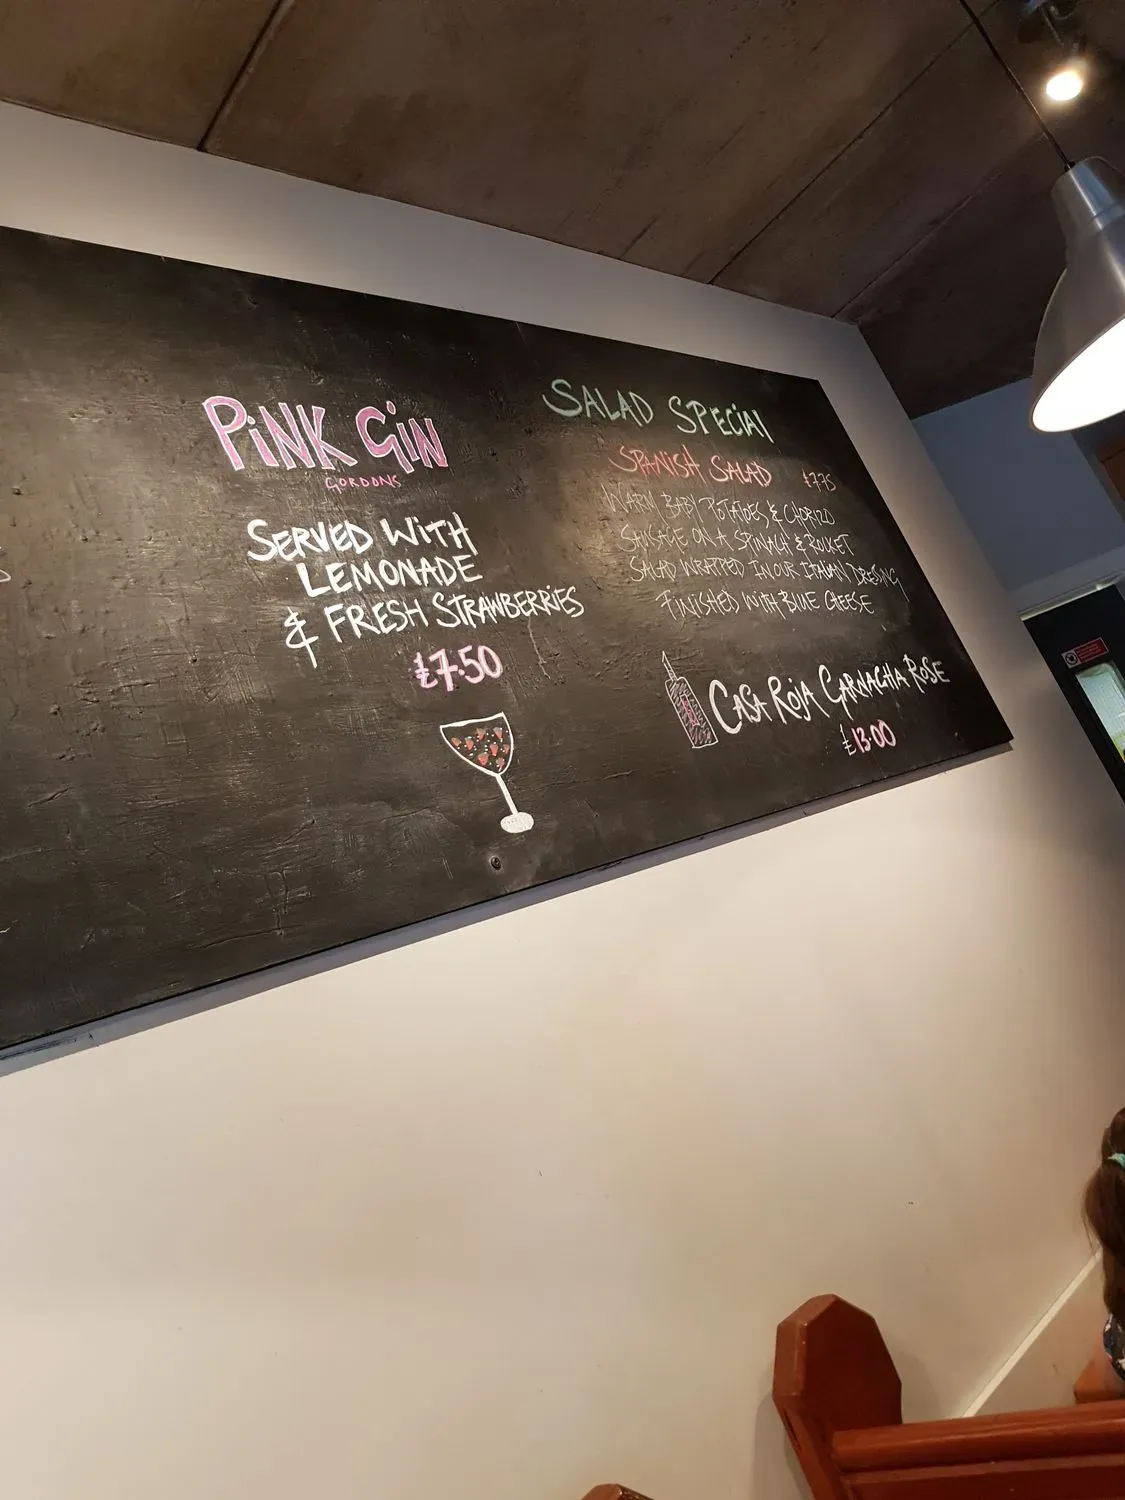 PiNK GiN
GORDONS
SERVED WiTH
LEMONADE
& FRESH STRAWBERRiES
£7.50
SALAD SPECiAl
SPANiSH SALAD £7.75
WARM BABY POTATOES & CHORIZO
SAUSAGE ON A SPINACH & ROCKET
SALAD WRAPPED IN OUR ITALIAN DRESSING
FINISHED WITH BLUE CHEESE
CASA ROJA GARNACHA ROSE
£13.00